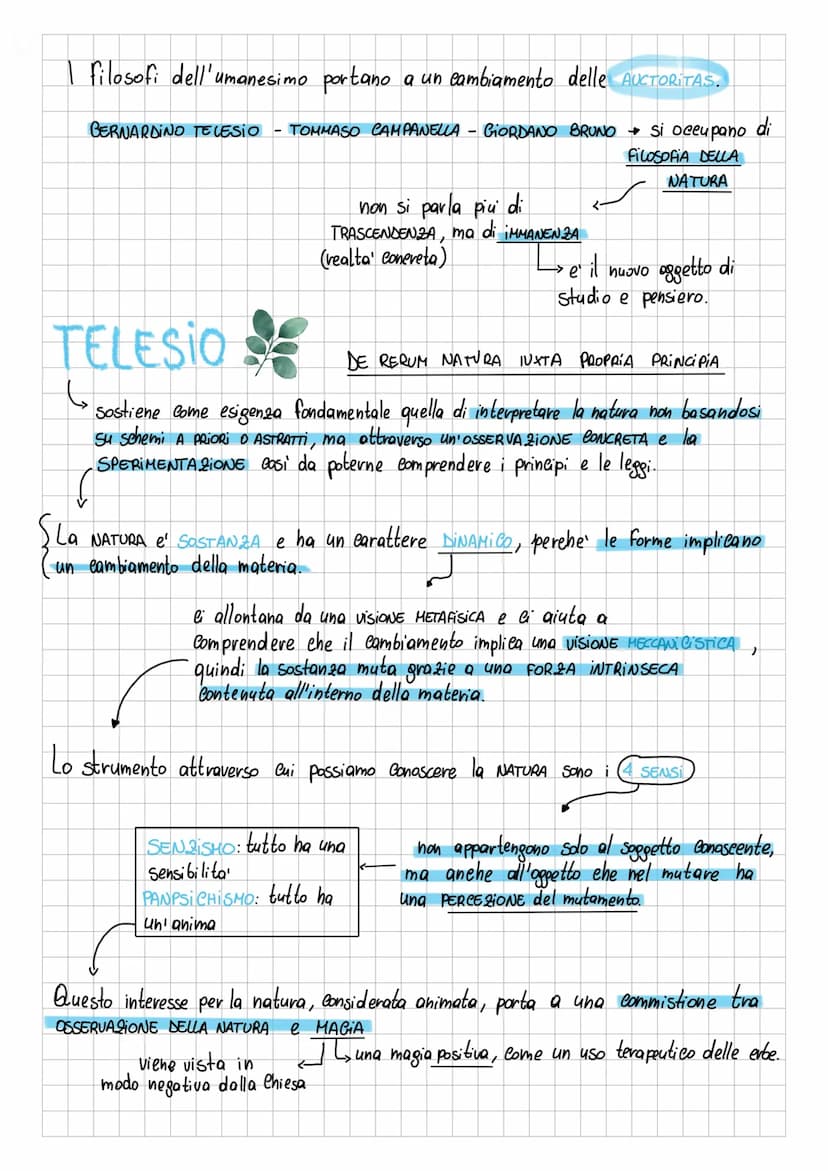 I filosofi dell'umanesimo portano a un cambiamento delle AUCTORITAS.
BERNARDINO TELESIO - TOMMASO CAMPANELLA - GIORDANO BRUNO → si occupano di
FILOSOFIA DELLA
NATURA
non si parla piu' di
TRASCENDENZA, ma di IMMANENZA
(realta' concreta)
e' il nuovo oggetto di
studio e pensiero.
TELESIO
DE RERUM NATURA IUXTA PROPRIA PRINCIPIA
sostiene come esigenza fondamentale quella di interpretare la natura non basandosi
su schemi A PRIORI O ASTRATTI, ma attraverso un'OSSERVAZIONE CONCRETA e la
SPERIMENTAZIONE cosi' da poterne comprendere i principi e le leggi.
La NATURA e' SOSTANZA e ha un carattere DINAMICO, perche' le forme implicano
un cambiamento della materia.
ci allontana da una VISIONE METAFISICA e ci aiuta a
comprendere che il cambiamento implica una VISIONE MECCANICISTICA,
quindi la sostanza muta grazie a una FORZA INTRINSECA
contenuta all'interno della materia.
Lo strumento attraverso cui possiamo conoscere la NATURA sono i 4 SENSI
SENZISMO: tutto ha una
sensibilita'
PANPSICHISMO: tutto ha
un'anima
non appartengono solo al soggetto conoscente,
ma anche all'oggetto che nel mutare ha
una PERCEZIONE del mutamento.
Questo interesse per la natura, considerata animata, porta a una commistione tra
OSSERVAZIONE DELLA NATURA e MAGIA
una magia positiva, come un uso terapeutico delle erbe.
viene vista in
modo negativa dalla Chiesa